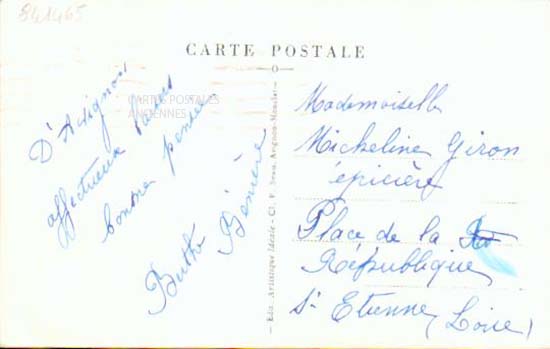 841465
CARTE POSTALE
CARTES POSTALES
ANCIENNES
D'Avignon
affectueux baisers
bonne pensée
Berthe Bénière
Edit. Artistique Idéale - Cl. F. Beau, Avignon-Monclar
Mademoiselle
Micheline Giron
épicière
Place de la
République
St Etienne (Loire)